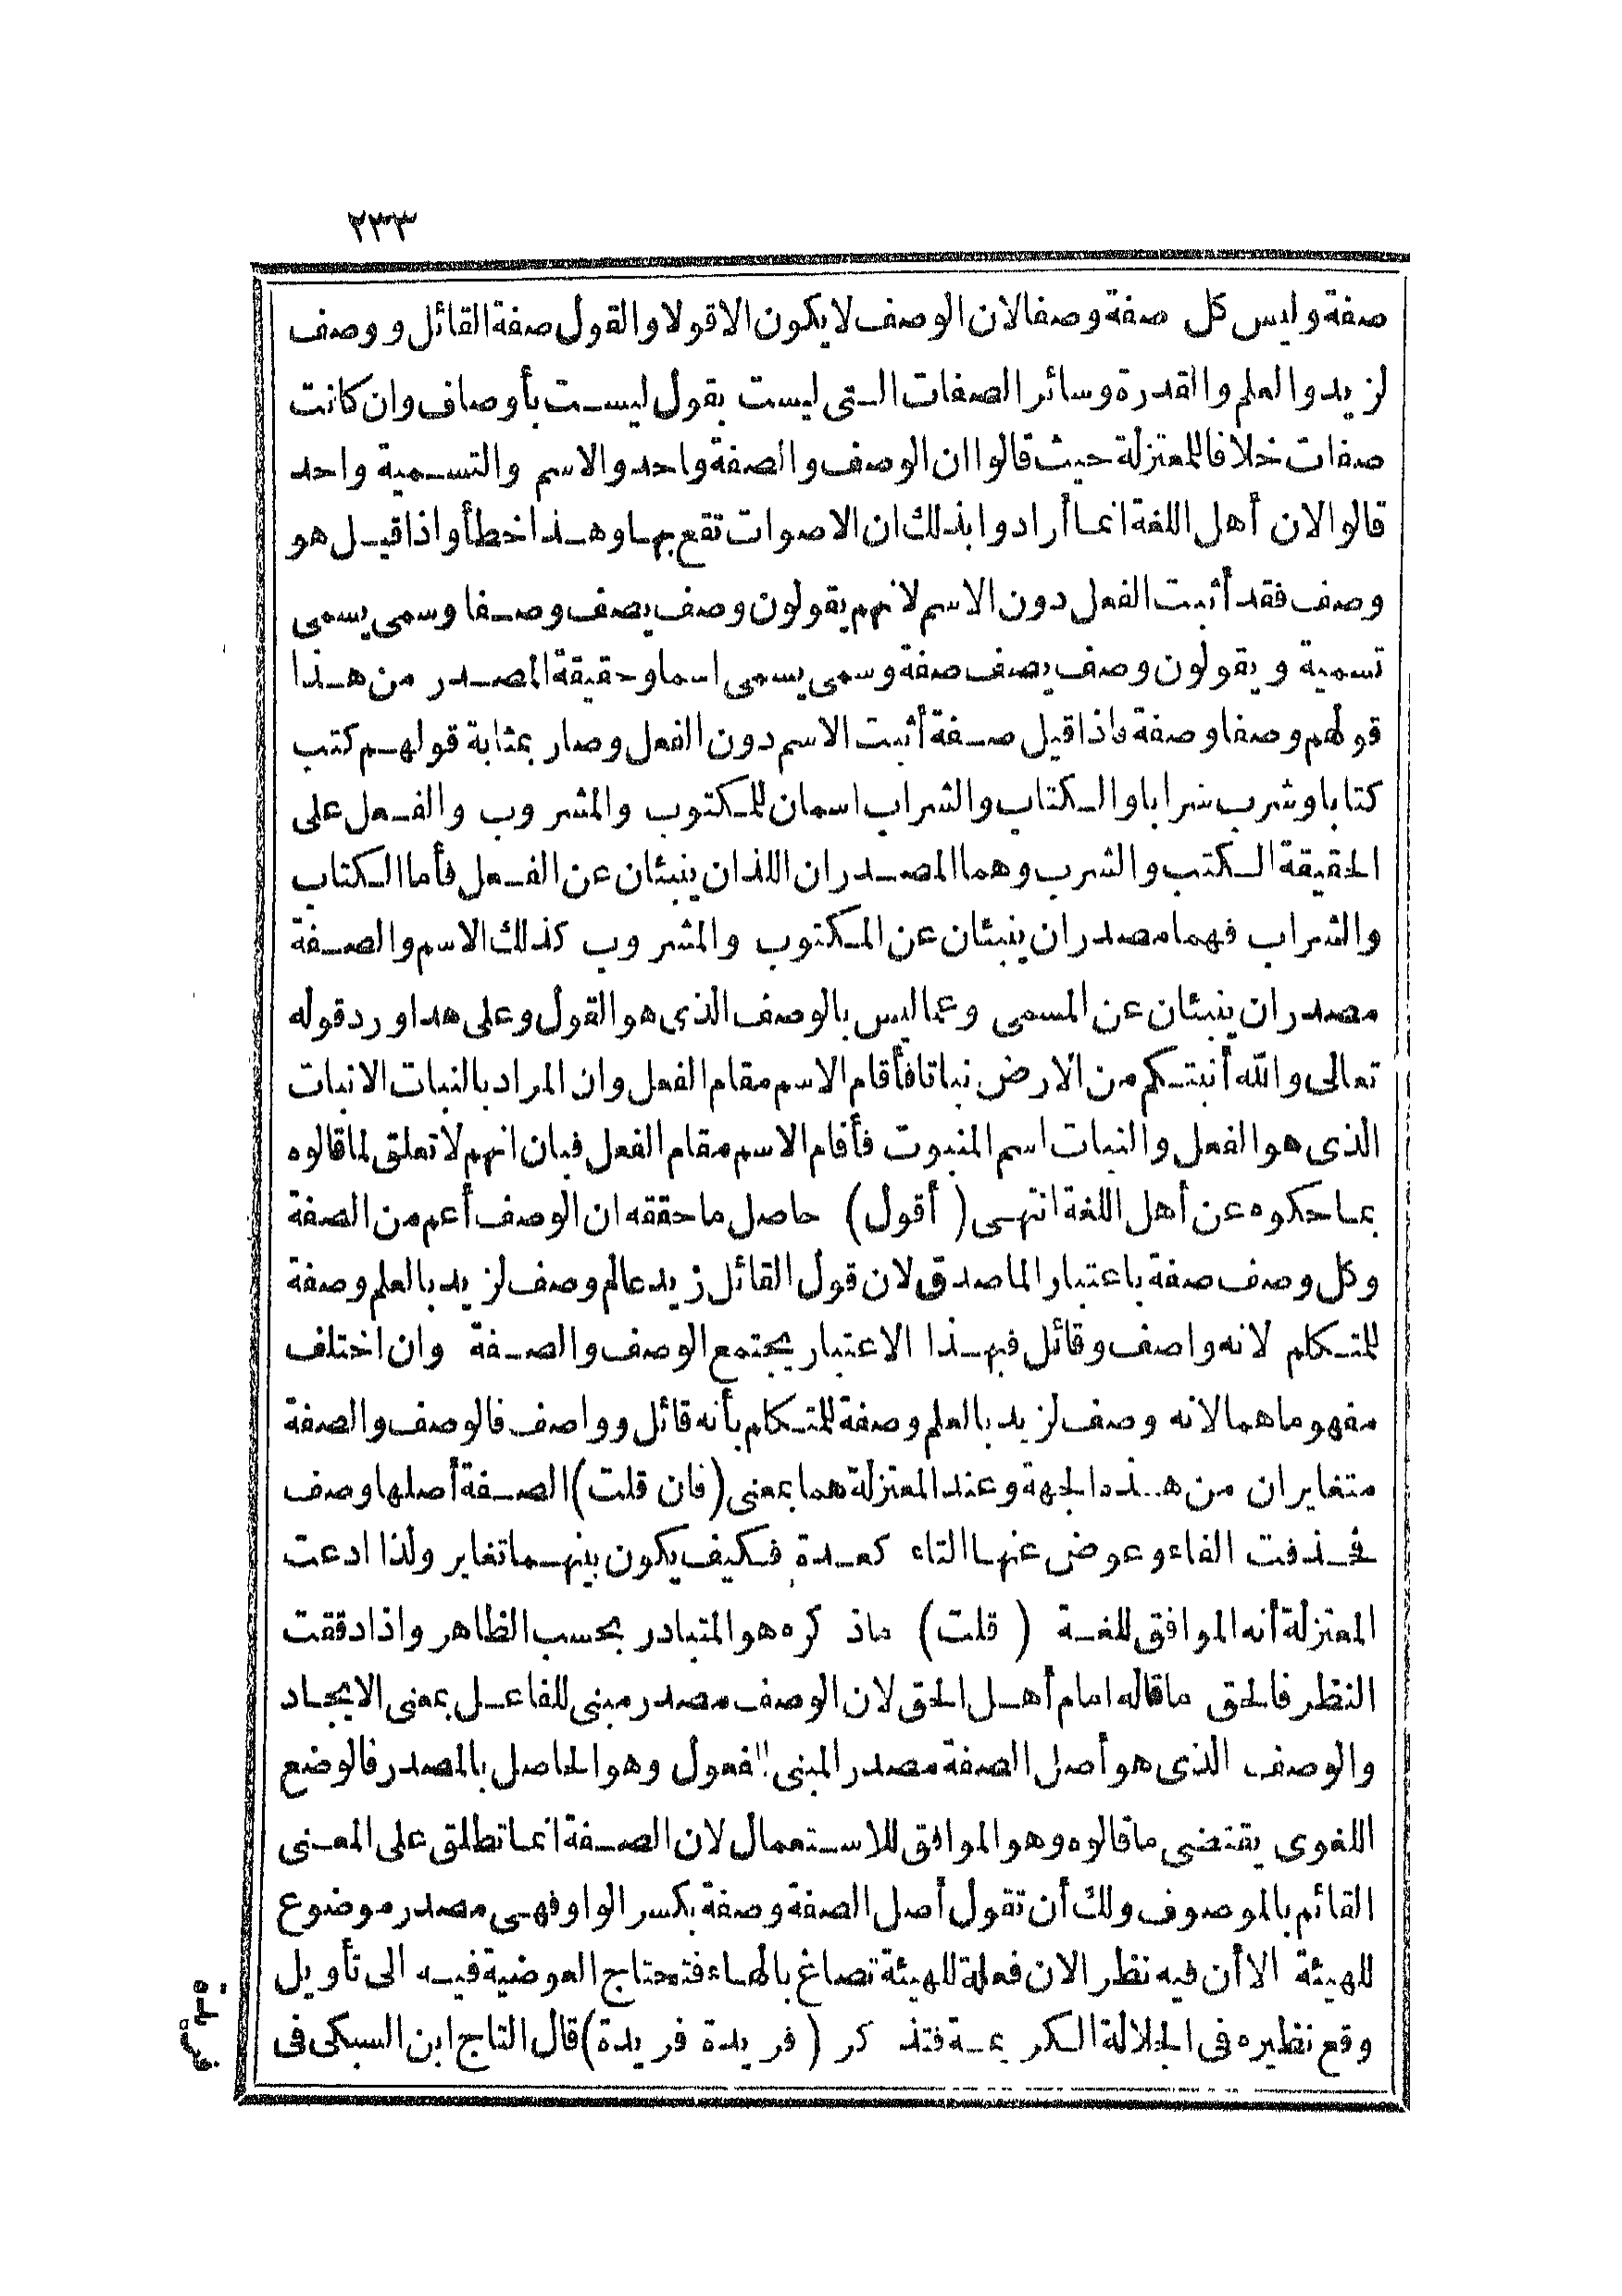 ٢٣٣
صفة وليس كل صفة وصفا لان الوصف لا يكون الا قولا والقول صفة القائل ووصف
لزيد والعلم والقدرة وسائر الصفات التى ليست بقول ليست بأوصاف وان كانت
صفات خلافا للمعتزلة حيث قالوا ان الوصف والصفة واحد والاسم والتسمية واحد
قالوا لان أهل اللغة انما أرادوا بذلك ان الاصوات تقع بها وهذا خطأ واذا قيل هو
وصف فقد أثبت الفعل دون الاسم لانهم يقولون وصف يصف وصفا وسمى يسمى
تسمية ويقولون وصف يصف صفة وسمى يسمى اسما وحقيقة المصدر من هذا
قولهم وصفا وصفة فاذا قيل صفة أثبت الاسم دون الفعل وصار بمثابة قولهم كتب
كتابا وشرب شرابا والكتاب والشراب اسمان للمكتوب والمشروب والفعل على
الحقيقة الكتب والشرب وهما المصدران اللذان ينبئان عن الفعل فأما الكتاب
والشراب فهما مصدران ينبئان عن المكتوب والمشروب كذلك الاسم والصفة
مصدران ينبئان عن المسمى وعما ليس بالوصف الذى هو القول وعلى هدا ورد قوله
تعالى والله أنبتكم من الارض نباتا فأقام الاسم مقام الفعل وان المراد بالنبات الانبات
الذى هو الفعل والنبات اسم المنبوت فأقام الاسم مقام الفعل فبان انهم لا تعلق لما قالوه
بما حكوه عن أهل اللغة انتهى (أقول) حاصل ما حققه ان الوصف أعم من الصفة
وكل وصف صفة باعتبار الماصدق لان قول القائل زيد عالم وصف لزيد بالعلم وصفة
للمتكلم لانه واصف وقائل فبهذا الاعتبار يجتمع الوصف والصفة وان اختلف
مفهوماهما لانه وصف لزيد بالعلم وصفة للمتكلم بأنه قائل وواصف فالوصف والصفة
متغايران من هذه الجهة وعند المعتزلة هما بمعنى (فان قلت) الصفة أصلها وصف
فحذفت الفاء وعوض عنها التاء كعدة فكيف يكون بينهما تغاير ولذا ادعت
المعتزلة أنه الموافق للغة (قلت) ماذكره هو المتبادر بحسب الظاهر واذا دققت
النظر فالحق ما قاله امام أهل الحق لان الوصف مصدر مبنى للفاعل بمعنى الايجاد
والوصف الذى هو أصل الصفة مصدر المبنى للفعول وهو الحاصل بالمصدر فالوضع
اللغوى يقتضى ما قالوه وهو الموافق للاستعمال لان الصفة انما تطلق على المعنى
القائم بالموصوف ولك أن تقول أصل الصفة وصفة بكسر الواو فهى مصدر موضوع
للهيئة الا أن فيه نظر الان فعلة للهيئة تصاغ بالهاء فتحتاج العوضية فيه الى تأويل
وقع نظيره فى الجلالة الكريمة فتذكر (فريدة فريدة) قال التاج ابن السبكى فى
فريدة